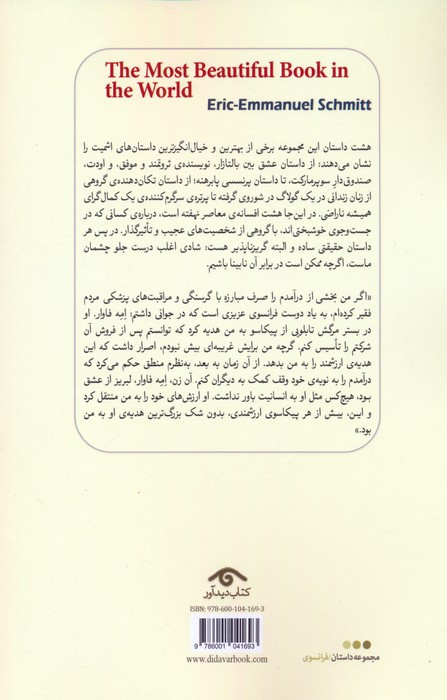 The Most Beautiful Book in
the World
Eric-Emmanuel Schmitt
هشت داستان این مجموعه برخی از بهترین و خیال‌انگیزترین داستان‌های اشمیت را
نشان می‌دهند: از داستان عشق بین بالتازار، نویسنده‌ی ثروتمند و موفق، و اودت،
صندوق‌دار سوپرمارکت، تا داستان پرنسسی پابرهنه؛ از داستان تکان‌دهنده‌ی گروهی
از زنان زندانی در یک گولاگ در شوروی گرفته تا پرتره‌ی سرگرم‌کننده‌ی یک کمال‌گرای
همیشه ناراضی. در این‌جا هشت افسانه‌ی معاصر نهفته است، درباره‌ی کسانی که در
جست‌وجوی خوشبختی‌اند، با گروهی از شخصیت‌های عجیب و تأثیرگذار. در پس هر
داستان حقیقتی ساده و البته گریزناپذیر هست: شادی اغلب درست جلو چشمان
ماست، اگرچه ممکن است در برابر آن نابینا باشیم.
«اگر من بخشی از درآمدم را صرف مبارزه با گرسنگی و مراقبت‌های پزشکی مردم
فقیر کرده‌ام، به یاد دوست فرانسوی عزیزی است که در جوانی داشتم: اِمِه فاوار. او
در بستر مرگش تابلویی از پیکاسو به من هدیه کرد که توانستم پس از فروش آن
شرکتم را تأسیس کنم. گرچه من برایش غریبه‌ای بیش نبودم، اصرار داشت که این
هدیه‌ی ارزشمند را به من بدهد. از آن زمان به بعد، به‌نظرم منطق حکم می‌کرد که
درآمدم را به نوبه‌ی خود وقف کمک به دیگران کنم. آن زن، اِمِه فاوار، لبریز از عشق
بود، هیچ‌کس مثل او به انسانیت باور نداشت. او ارزش‌های خود را به من منتقل کرد
و این، بیش از هر پیکاسوی ارزشمندی، بدون شک بزرگ‌ترین هدیه‌ی او به من
بود.»
کتاب دیدآور
ISBN: 978-600-104-169-3
9 786001 041693
www.didavarbook.com
مجموعه داستان/فرانسوی